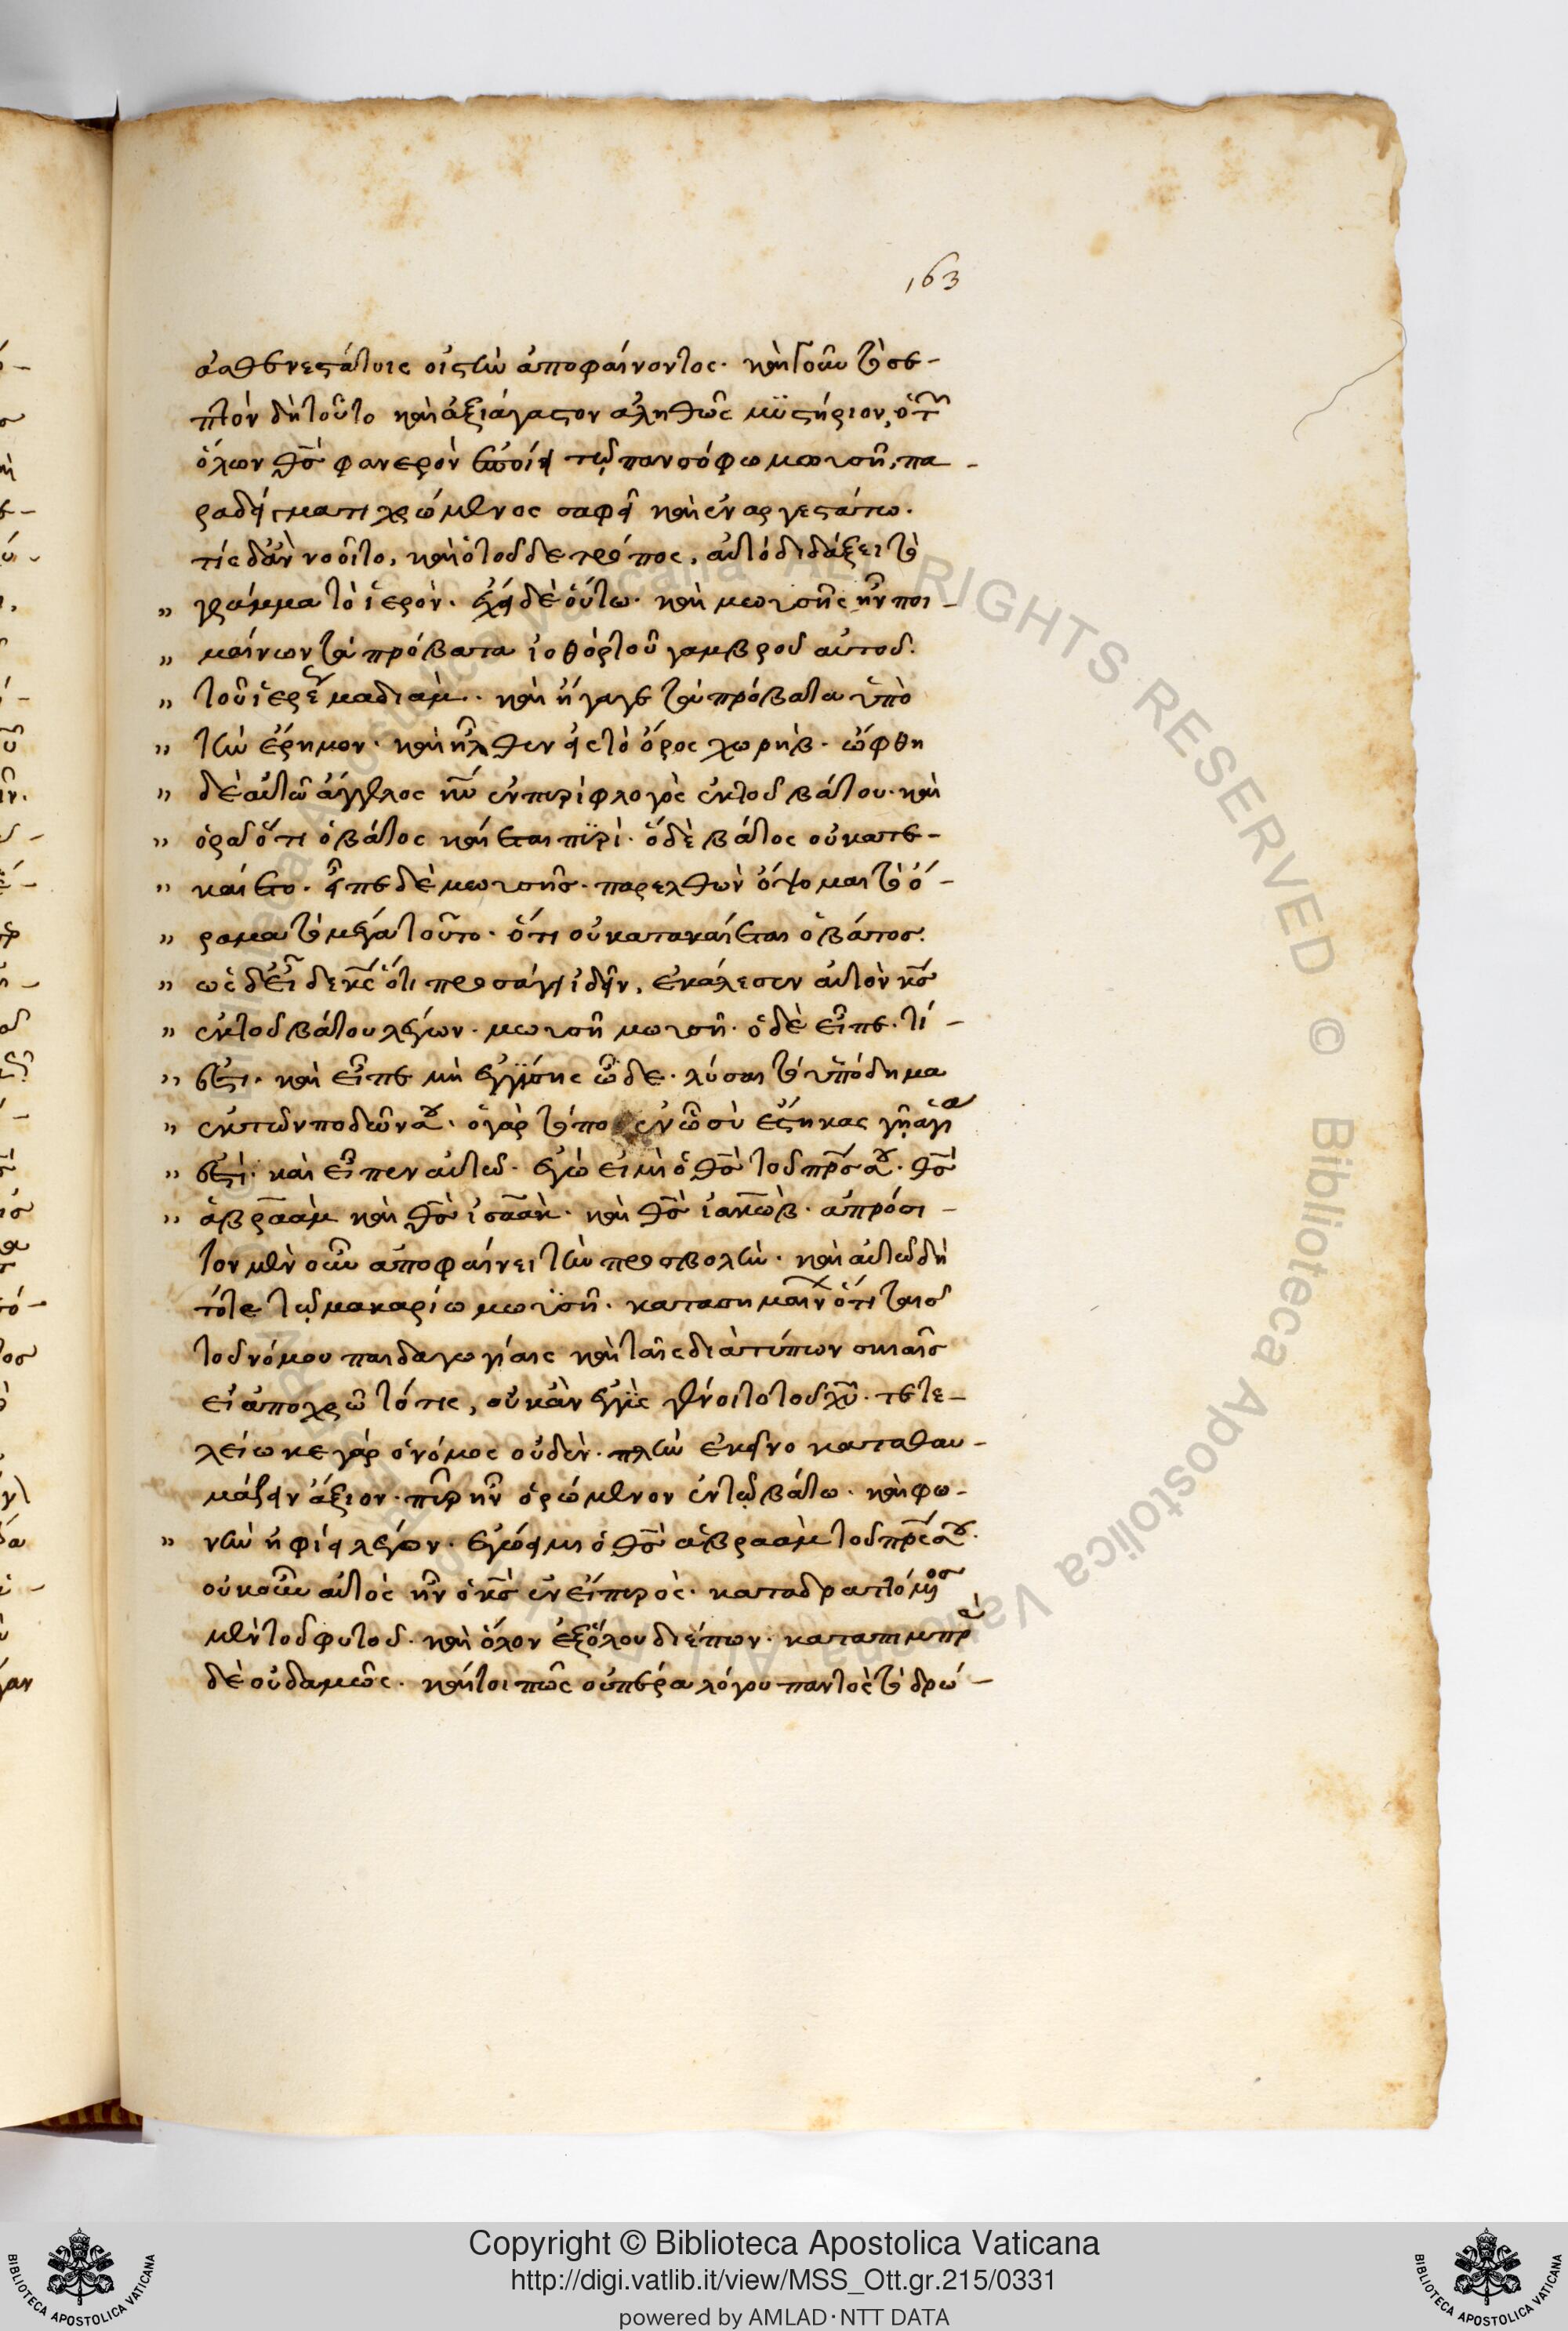 163
ἀσθενεστάτοις οἰστὴν ἀποφαίνοντος. καὶ γοῦν τὸ σε-
πτὸν δὴ τοῦτο καὶ ἀξιάγαστον ἀληθῶς μϋστήριον, ὁ τῶν
ὅλων θς̅ φανερὸν ἐποίει τῷ πανσόφω μωυσῆ, πα-
ραδείγματι χρώμενος σαφεῖ καὶ ἐναργεστάτω.
τίς δ' ἂν νοοῖτο, καὶ ὁ τοῦδε τρόπος, αὐτὸ διδάξει τὸ
" γράμμα τὸ ἱερὸν. ἔχει δὲ οὕτω. καὶ μωυσῆς ἦν ποι-
" μαίνων τὰ πρόβατα ἰοθὸρ τοῦ γαμβροῦ αὐτοῦ.
" τοῦ ἱερέως μαδιάμ. καὶ ἤγαγε τὰ πρόβατα ὑπὸ
" τὴν ἔρημον. καὶ ἦλθεν εἰς τὸ ὄρος χωρήβ. ὤφθη
" δὲ αὐτῶ ἄγγελος κυ̅ ἐν πυρὶ φλογὸς ἐκ τοῦ βάτου. καὶ
" ὁρᾶ ὅτι ὁ βάτος καίεται πϋρὶ. ὁ δὲ βάτος οὐ κατε-
" καίετο. εἶπε δὲ μωυσῆς. παρελθὼν ὄψομαι τὸ ὅ-
" ραμα τὸ μέγα τοῦτο. ὅτι οὐ κατακαίεται ὁ βάτος.
" ὡς δὲ εἶδε κς̅ ὅτι προσάγει ἰδεῖν, ἐκάλεσεν αὐτὸν κς̅
" ἐκ τοῦ βάτου λέγων. μωυσῆ μωυσῆ. ὁ δὲ εἶπε. τί
" ἐστι. καὶ εἶπε μὴ ἐγγίσης ὧδε. λύσαι τὸ ὑπόδημα
" ἐκ τῶν ποδῶν σου. ὁ γὰρ τόπο ἐν ὧ σὺ ἕστηκας γῆ ἁγία
" ἐστί. καὶ εἶπεν αὐτῶ. ἐγώ εἰμὶ ὁ θς̅ τοῦ πρς̅ σου. θς̅
" ἀβρααμ καὶ θς̅ ἰσαακ. καὶ θς̅ ἰακωβ. ἀπρόσι-
τον μὲν οὖν ἀποφαίνει τὴν προσβολὴν. καὶ αὐτῶ δὴ
τότε τῷ μακαρίω μωϋσῆ. κατασημαίνων ὅτι ταῖς
τοῦ νόμου παιδαγωγίαις καὶ ταῖς διὰ τύπων σκιαῖς
εἰ ἀποχρῶτό τις, οὐκ ἂν ἐγγὺς γένοιτο τοῦ χυ̅. τετε-
λείωκε γὰρ ὁ νόμος οὐδὲν. πλὴν ἐκεῖνο καταθαυ-
μάζειν ἄξιον. πῦρ ἦν ὁρώμενον ἐν τῷ βάτω. καὶ φω-
" νὴν ἠφίει λέγον. ἐγώ εἰμι ὁ θς̅ ἀβραὰμ τοῦ πρς̅ σου.
οὐκοῦν αὐτὸς ἦν ὁ κς̅ ἐν εἴδει πυρὸς. καταδραττόμενος
μὲν τοῦ φυτοῦ. καὶ ὅλον ἐξ ὅλου διέπων. καταπιμπρὰς
δὲ οὐδαμῶς. καίτοι πῶς οὐ πέρα λόγου παντὸς τὸ δρώ-
Copyright © Biblioteca Apostolica Vaticana
http://digi.vatlib.it/view/MSS_Ott.gr.215/0331
powered by AMLAD·NTT DATA